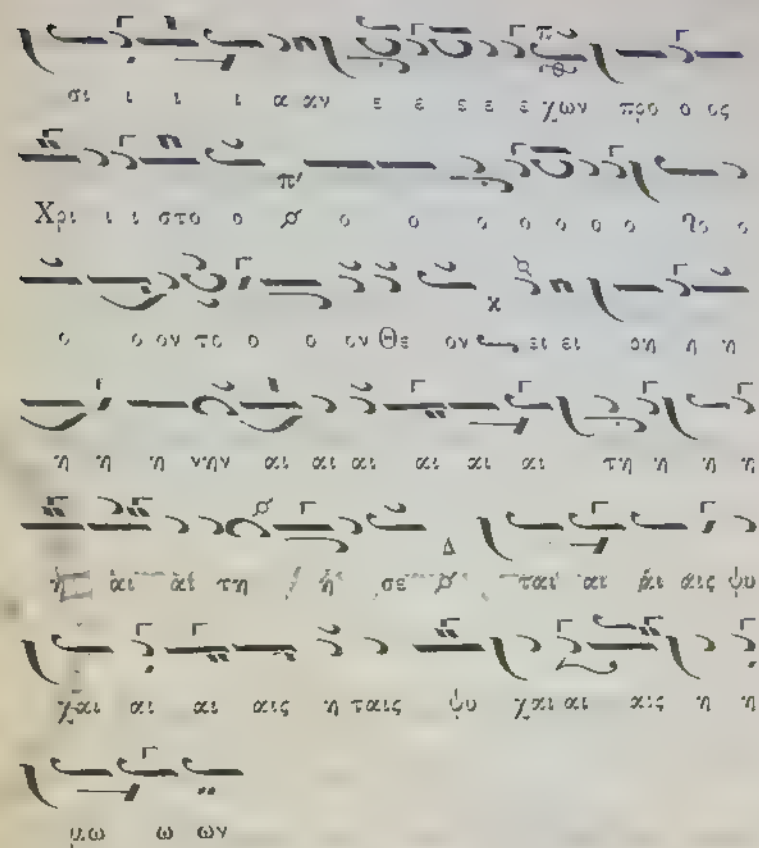 σι ι ι ι α αν ε ε ε ε ε χων προ ο ος
Χρι ι ι στο ο ο ο ο ο ο ο ο ο
ο ο ον το ο ο ον Θε ον ει ει ρη η η
η η η νην αι αι αι αι αι αι τη η η η
η αι αι τη η σε ται αι αι αις ψυ
χαι αι αι αις η ταις ψυ χαι αι αις η η
μω ω ων